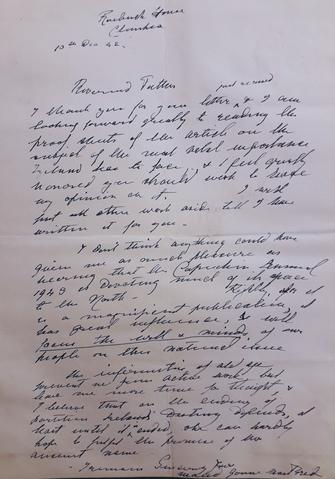 Roebuck House
Clonskea
10th Dec 42.
Reverend Father
just received
I thank you for your letter & I am
looking forward greatly to reading the
proof sheets of the article on the
subject of the most vital importance
Ireland has to face, & I feel greatly
honored you should wish to have
my opinion on it. I will
put all other work aside till I have
written it for you.
I don't think anything could have
given me as much pleasure as
hearing that the Capuchin Annual
1943 is devoting much of its space
to the North. as it
is a magnificent publication, it
has great influence & will
focus the will & minds of our
people on this national issue
The infirmities of old age
prevent me from active work but
leave me more time for thought &
I believe that on the ending of
partition Ireland's Destiny depends, at
least until it is ended, she can hardly
hope to fulfil the promise of her
ancient name
I remain Sincerely Yours
Maud Gonne MacBride